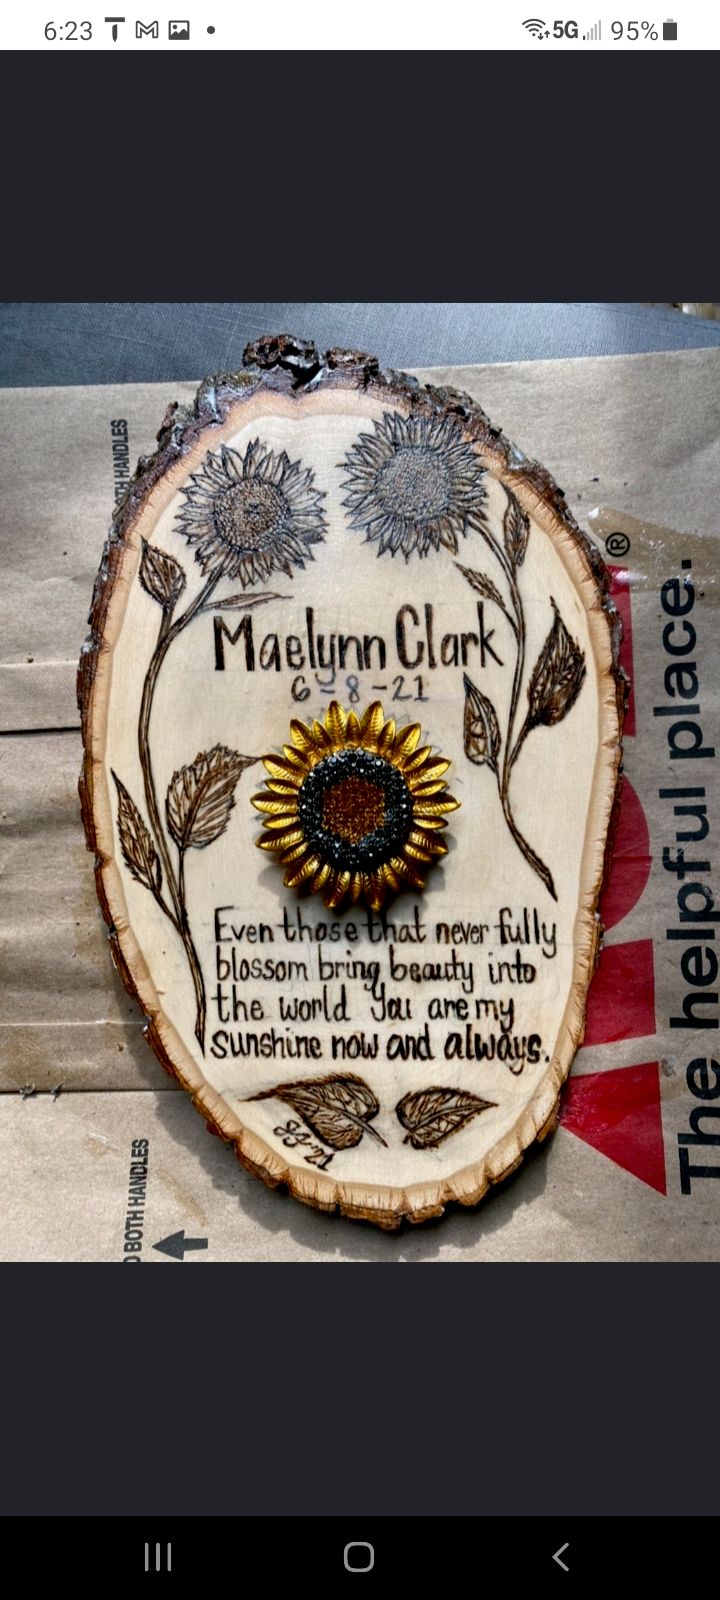 6:23
5G
95%
TH HANDLES
Maelynn Clark
6-8-21
Even those that never fully
blossom bring beauty into
the world You are my
sunshine now and always.
The helpful place.
®
O BOTH HANDLES